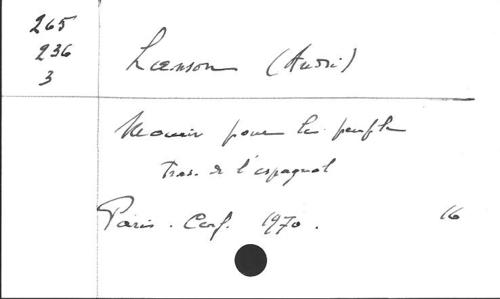 265
236
3
Laenson (André)
Mourir pour le peuple
Trad. de l'espagnol
Paris. Cerf. 1970. 16